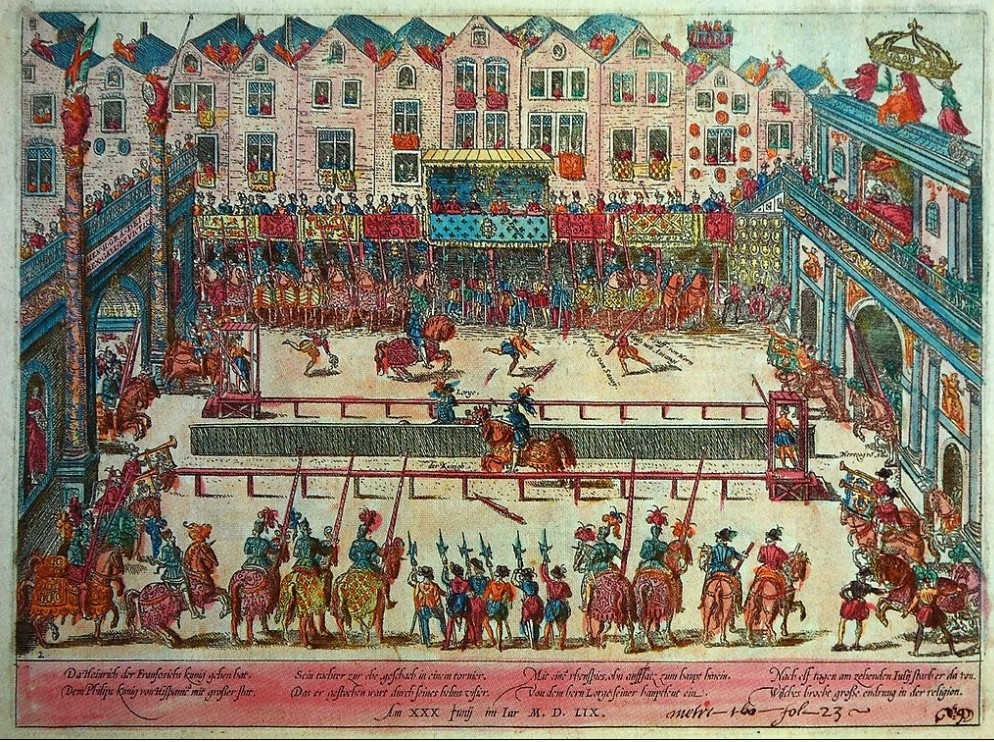 Lorge.
der Kunig
Da Heinrich der Franßosichs kunig geben hat.
Dem Philips kunig von Hispanie mit grosser stat.
Sein tochter zur ehe geschach in einem tornier.
Das er gestochen wart durch seines helms visier.
Mit eine rhenspies, ohn auffsatz zum haupt hinein.
Von dem hern Lorge seiner hauptleut ein.
Nach elf tagen am zehenden Iulij starb er da von.
Wilches brocht große endrung in der religion.
Am XXX Junij im Iar M. D. LIX.
fol-23
2